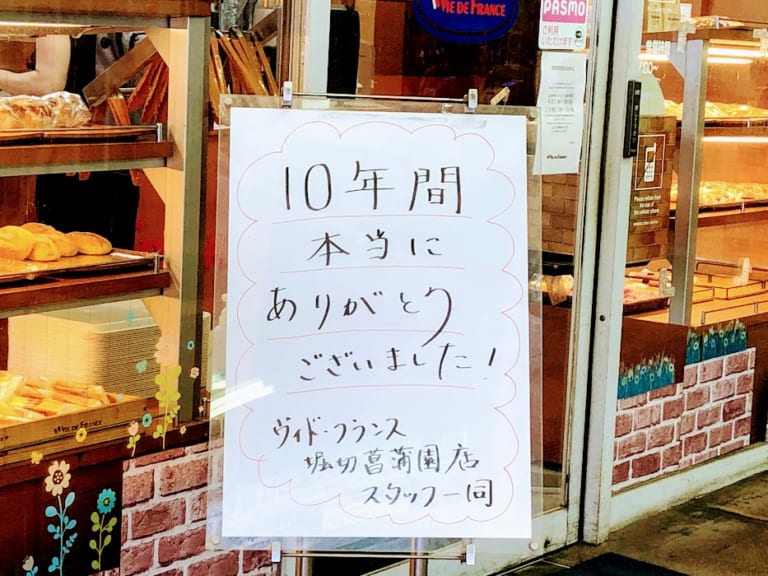 VIE DE FRANCE
PASMO
ご利用
いただけます
10年間
本当に
ありがとう
ございました!
ヴィド・フランス
堀切菖蒲園店
スタッフ一同
VIE DE FRANCE